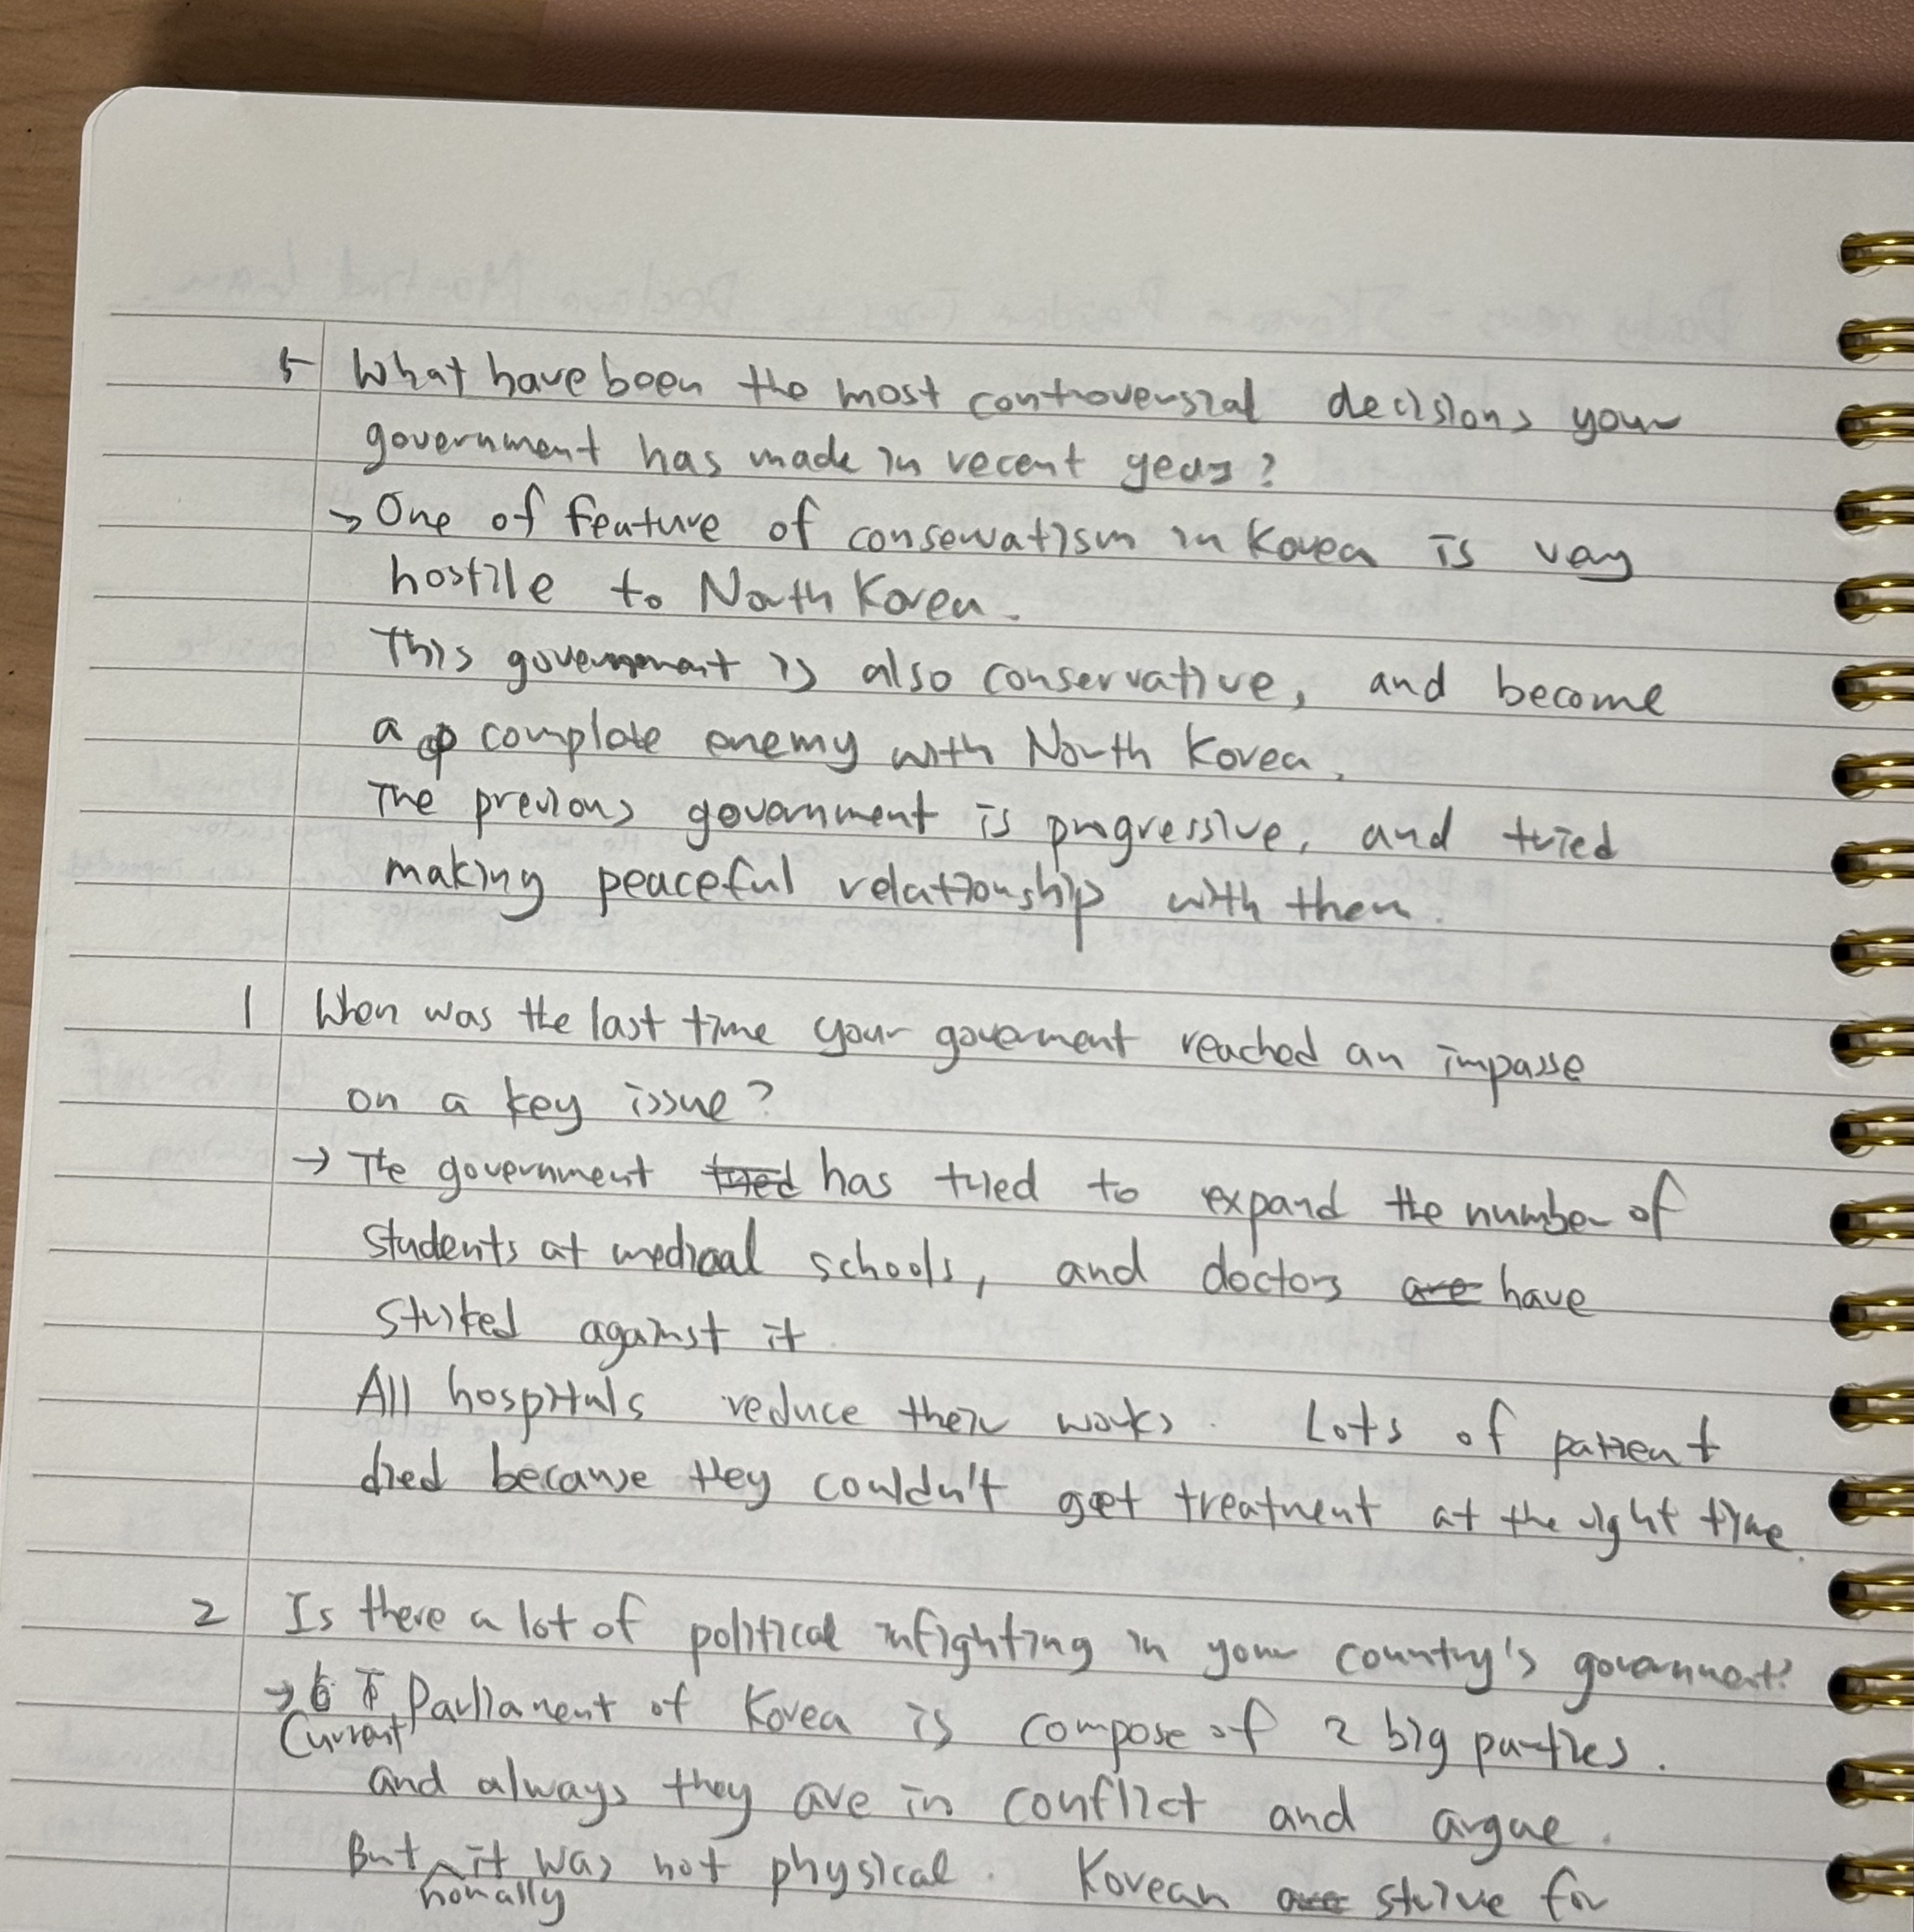 5 What have been the most controversial decisions your
government has made in recent years?
→ One of feature of conservatism in Korea is very
hostile to North Korea.
This government is also conservative, and become
a complete enemy with North Korea.
The previous government is progressive, and tried
making peaceful relationship with them.
1 When was the last time your goverment reached an impasse
on a key issue?
→ The government tried has tried to expand the number of
students at medical schools, and doctors are have
striked against it.
All hospitals reduce their works. Lots of patient
died because they couldn't get treatment at the right time.
2 Is there a lot of political infighting in your country's government?
→ Parliament of Korea is compose of 2 big parties.
Current
and always they are in conflict and argue.
But it was not physical. Korean are strive for
nomally